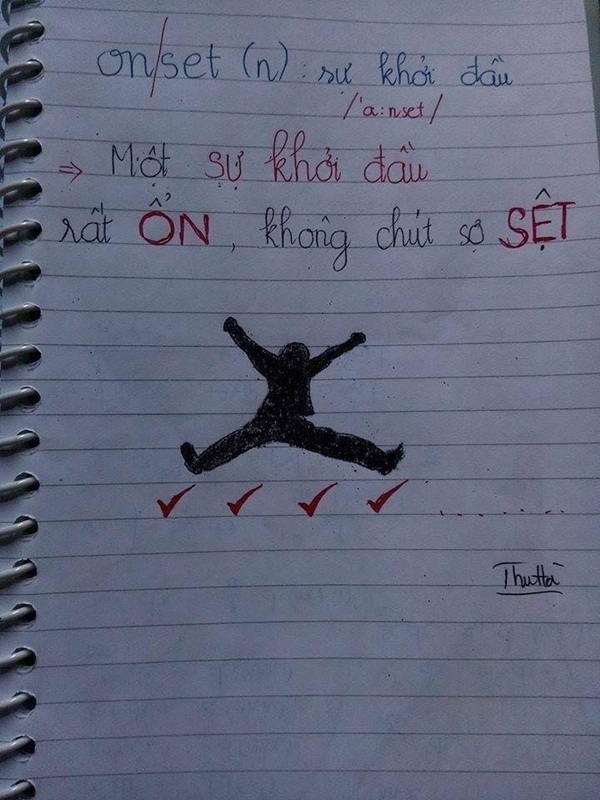 on/set (n): sự khởi đầu
/'a:nset/
⇒ Một sự khởi đầu
rất ỔN, không chút sợ SỆT
ThuHà